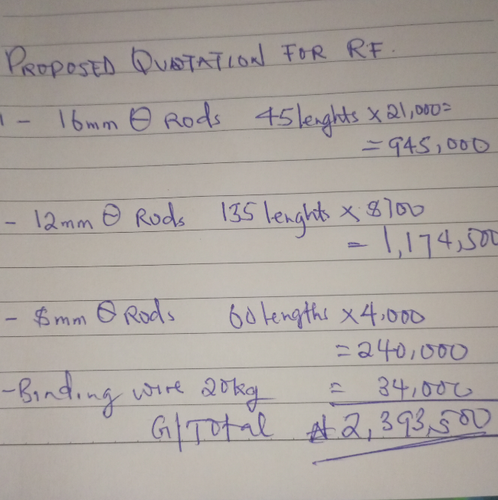 PROPOSED QUOTATION FOR RF.
1 - 16mm Ꮎ RODS 45 lenghts x 21,000=
= 945,000
- 12mm Ꮎ RODS 135 lenghts x 8700
= 1,174,500
- 8mm Ꮎ RODS 60 lengths x 4,000
= 240,000
- Binding wire 20kg = 34,000
G/TOTAL ₦ 2,393,500